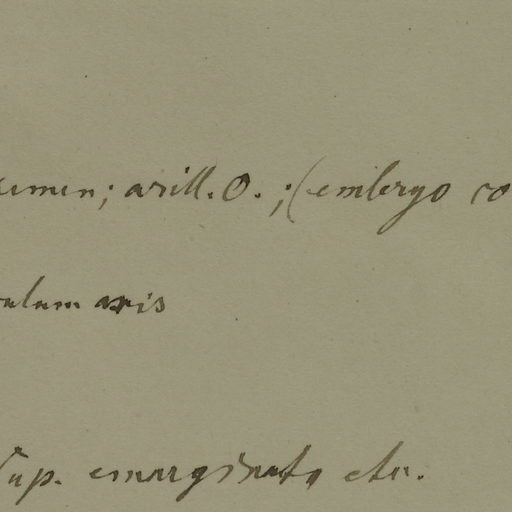 umen; arill. O. ; (embryo co
ulum axis
sup. emarginata etc.